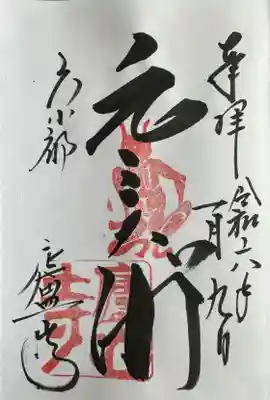 奉拝
令和六年
一月九日
元三大師
京都
廬山寺